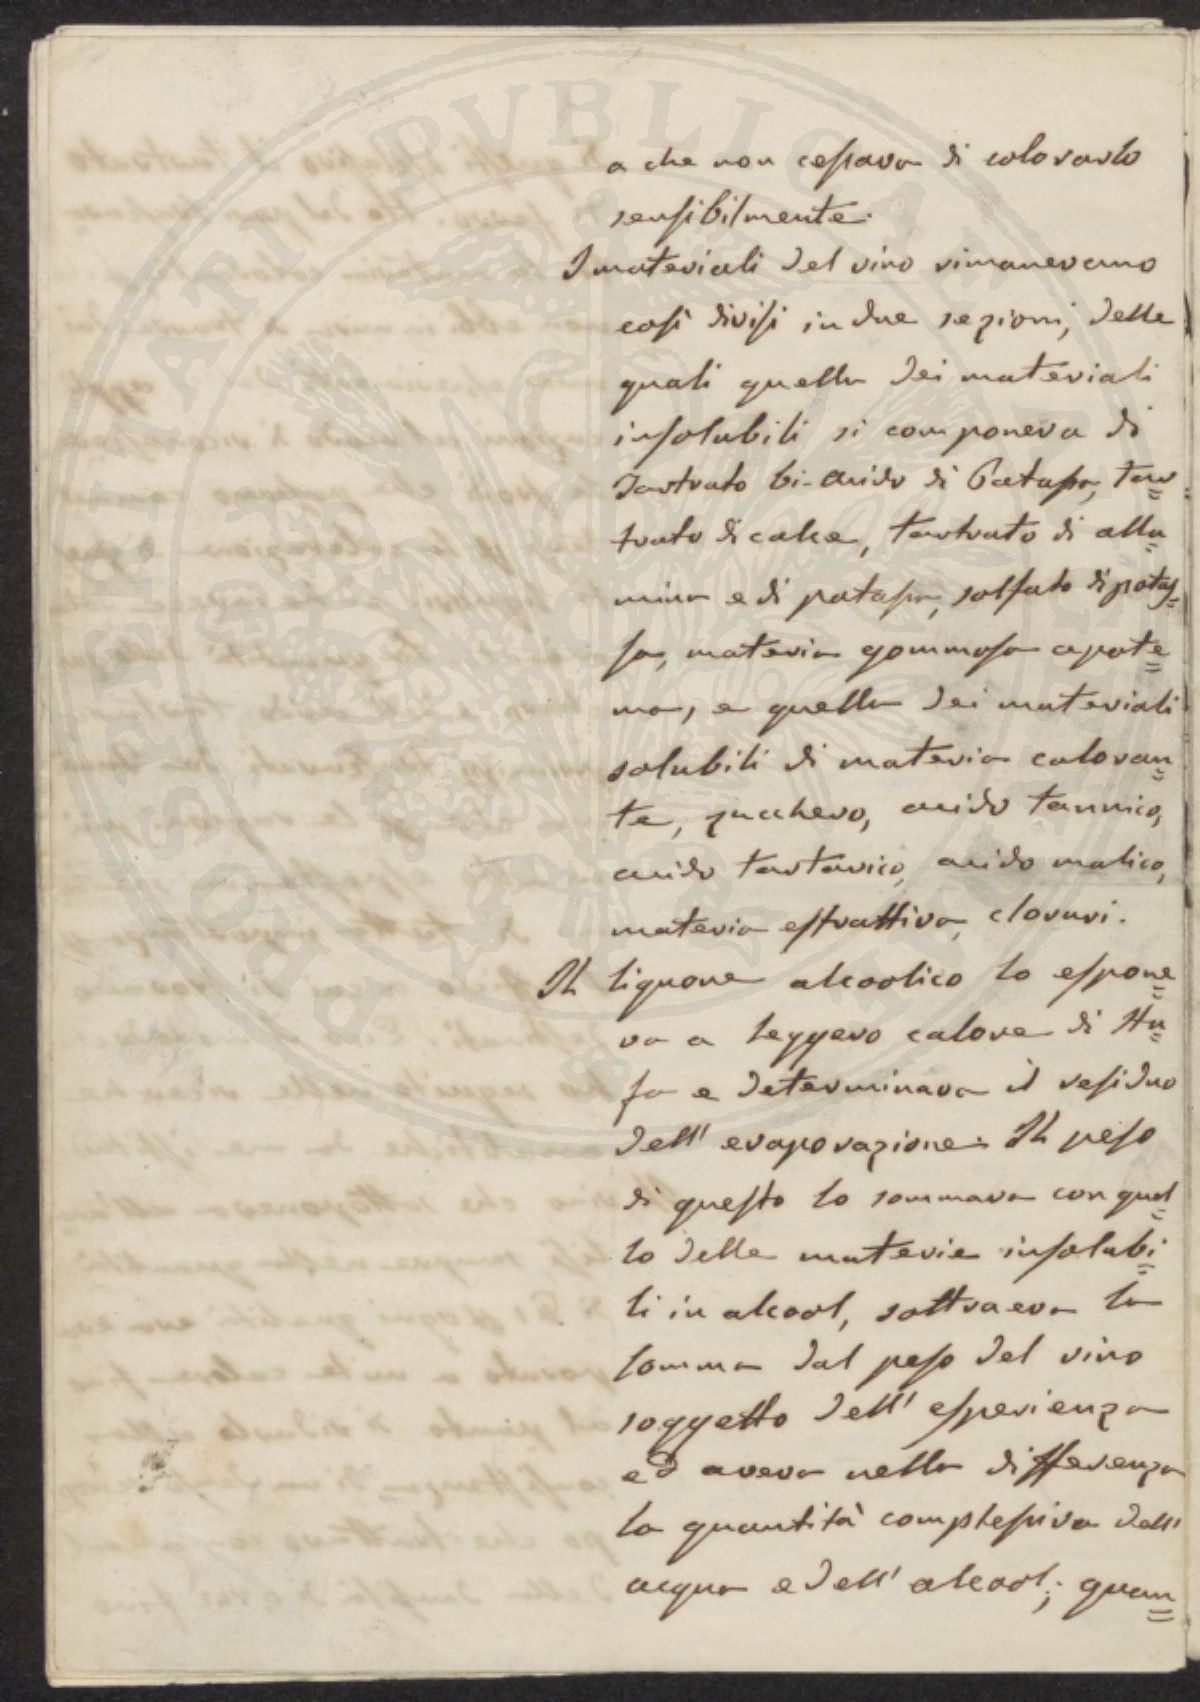 a che non cessava di colorarlo
sensibilmente.
I materiali del vino rimanevano
così divisi in due sezioni, delle
quali quella dei materiali
insolubili si componeva di
Tartrato bi-acido di Potassa, tar=
trato di calce, tartrato di allu=
mina e di potassa, solfato di potas=
sa, materia gommosa apote=
ma, e quella dei materiali
solubili di materia coloran=
te, zucchero, acido tannico,
acido tartarico, acido malico,
materia estrattiva, cloruri.
Il liquore alcoolico lo espone=
va a leggero calore di stu=
fa e determinava il residuo
dell' evaporazione. Il peso
di questo lo sommava con quel=
lo delle materie insolubi=
li in alcool, sottraeva la
somma dal peso del vino
soggetto dell' esperienza
ed aveva nella differenza
la quantità complessiva dell'
acqua e dell' alcool; quan=
PROSPERITATI PVBLICAE